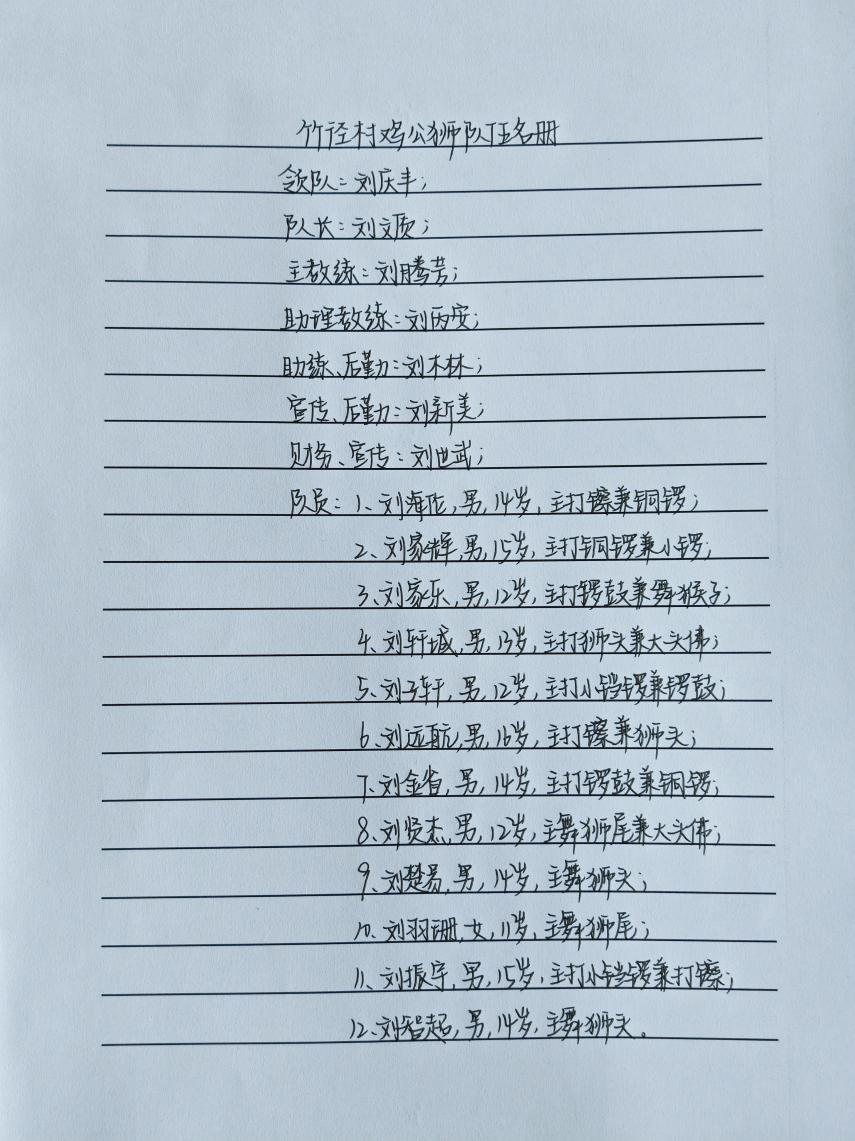 竹径村鸡公狮队伍名册
领队：刘庆丰；
队长：刘文质；
主教练：刘腾芳；
助理教练：刘丙安；
助练、后勤：刘木林；
宣传、后勤：刘新美；
财务、宣传：刘世武；
队员：1、刘海陀，男，14岁，主打镲兼铜锣；
2、刘家辉，男，15岁，主打铜锣兼小锣；
3、刘家乐，男，12岁，主打锣鼓兼舞猴子；
4、刘轩城，男，13岁，主打狮头兼大头佛；
5、刘子轩，男，12岁，主打小铛锣兼锣鼓；
6、刘远航，男，16岁，主打镲兼狮头；
7、刘金省，男，14岁，主打锣鼓兼铜锣；
8、刘贤杰，男，12岁，主舞狮尾兼大头佛；
9、刘楚易，男，14岁，主舞狮头；
10、刘羽珊，女，11岁，主舞狮尾；
11、刘振宇，男，15岁，主打小铛锣兼打镲；
12、刘智超，男，14岁，主舞狮头。